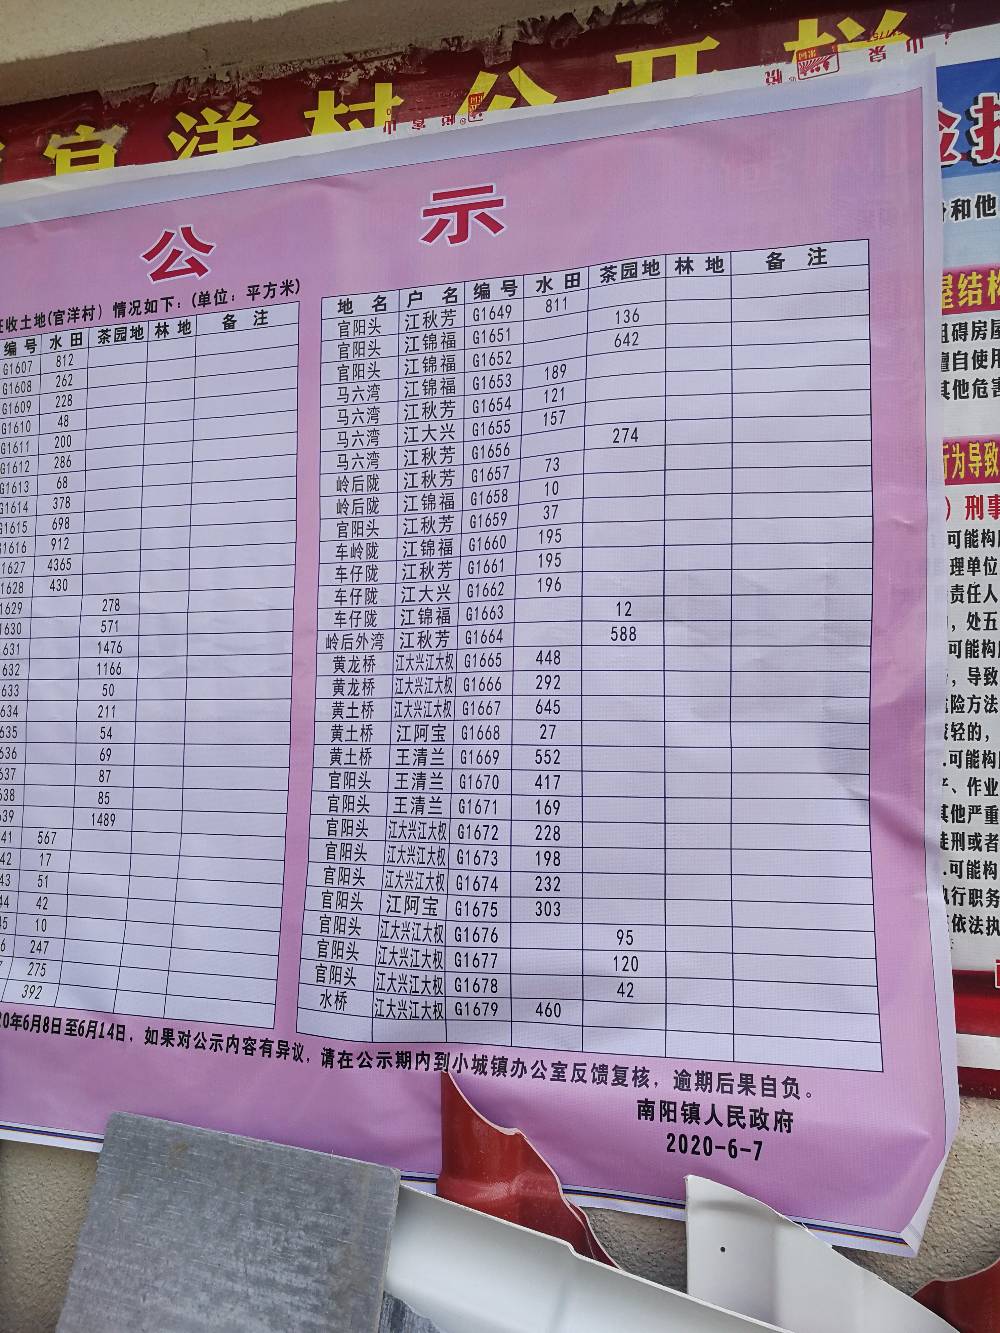 官洋村公开栏
公示
征收土地(官洋村）情况如下：(单位：平方米)
编号 水田 茶园地 林地 备注
G1607 812
G1608 262
G1609 228
G1610 48
G1611 200
G1612 286
G1613 68
G1614 378
G1615 698
G1616 912
1627 4365
1628 430
1629 278
1630 571
631 1476
632 1166
633 50
634 211
635 54
636 69
637 87
638 85
639 1489
41 567
42 17
43 51
44 42
45 10
6 247
7 275
392
地名 户名 编号 水田 茶园地 林地 备注
官阳头 江秋芳 G1649 811
官阳头 江锦福 G1651 136
官阳头 江锦福 G1652 642
马六湾 江锦福 G1653 189
马六湾 江秋芳 G1654 121
马六湾 江大兴 G1655 157
马六湾 江秋芳 G1656 274
岭后陇 江秋芳 G1657 73
岭后陇 江锦福 G1658 10
官阳头 江秋芳 G1659 37
车岭陇 江锦福 G1660 195
车仔陇 江秋芳 G1661 195
车仔陇 江大兴 G1662 196
车仔陇 江锦福 G1663 12
岭后外湾 江秋芳 G1664 588
黄龙桥 江大兴江大权 G1665 448
黄龙桥 江大兴江大权 G1666 292
黄土桥 江大兴江大权 G1667 645
黄土桥 江阿宝 G1668 27
黄土桥 王清兰 G1669 552
官阳头 王清兰 G1670 417
官阳头 王清兰 G1671 169
官阳头 江大兴江大权 G1672 228
官阳头 江大兴江大权 G1673 198
官阳头 江大兴江大权 G1674 232
官阳头 江阿宝 G1675 303
官阳头 江大兴江大权 G1676 95
官阳头 江大兴江大权 G1677 120
官阳头 江大兴江大权 G1678 42
水桥 江大兴江大权 G1679 460
20年6月8日至6月14日，如果对公示内容有异议，请在公示期内到小城镇办公室反馈复核，逾期后果自负。
南阳镇人民政府
2020-6-7
和他
屋结构
阻碍房屋
擅自使用
其他危害
行为导致
）刑事
.可能构
理单位
责任人
，处五
可能构
，导致
危险方法
较轻的，
.可能构
、作业
其他严重
徒刑或者
.可能构
执行职务
依法执